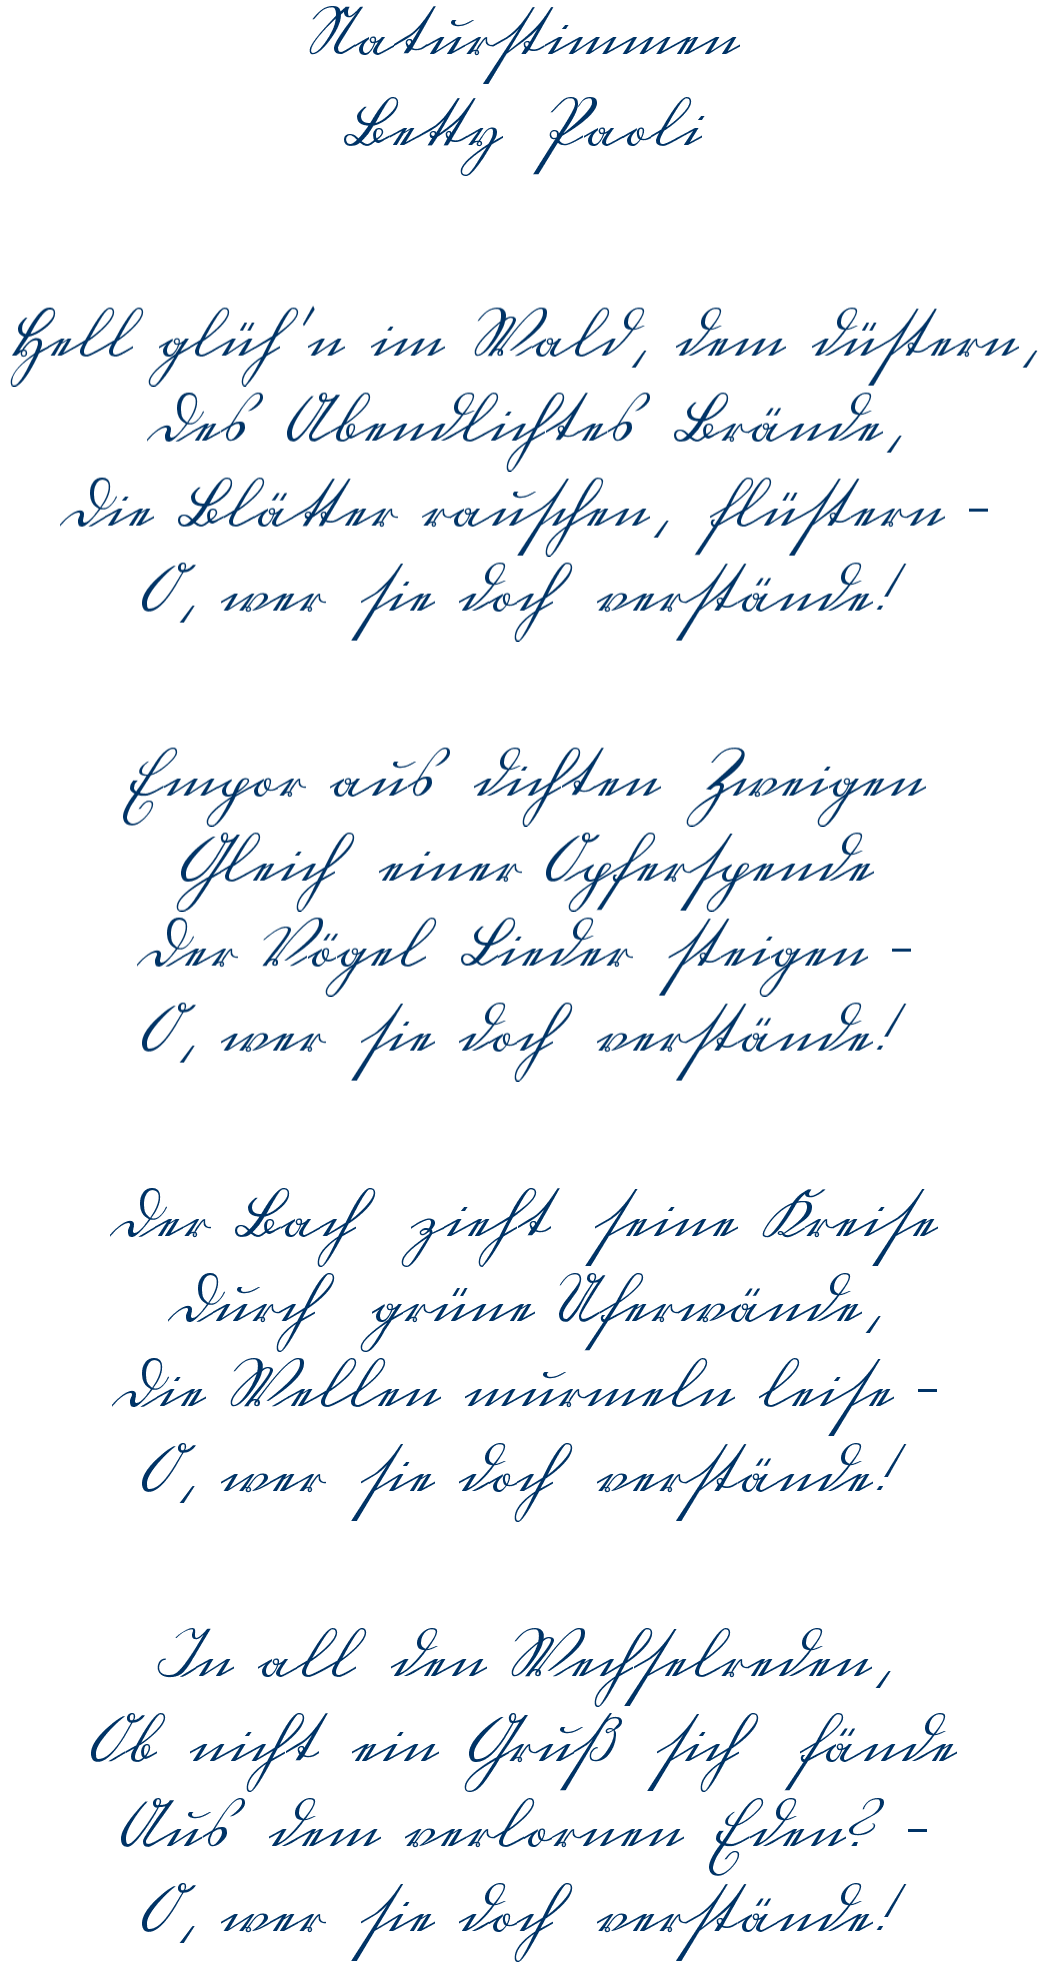 Naturstimmen
Betty Paoli
Hell glüh'n im Wald, dem düstern,
Des Abendlichtes Brände,
Die Blätter rauschen, flüstern -
O, wer sie doch verstände!
Empor aus dichten Zweigen
Gleich einer Opferspende
Der Vögel Lieder steigen -
O, wer sie doch verstände!
Der Bach zieht seine Kreise
Durch grüne Uferwände,
Die Wellen murmeln leise -
O, wer sie doch verstände!
In all den Wechselreden,
Ob nicht ein Gruß sich fände
Aus dem verlornen Eden? -
O, wer sie doch verstände!